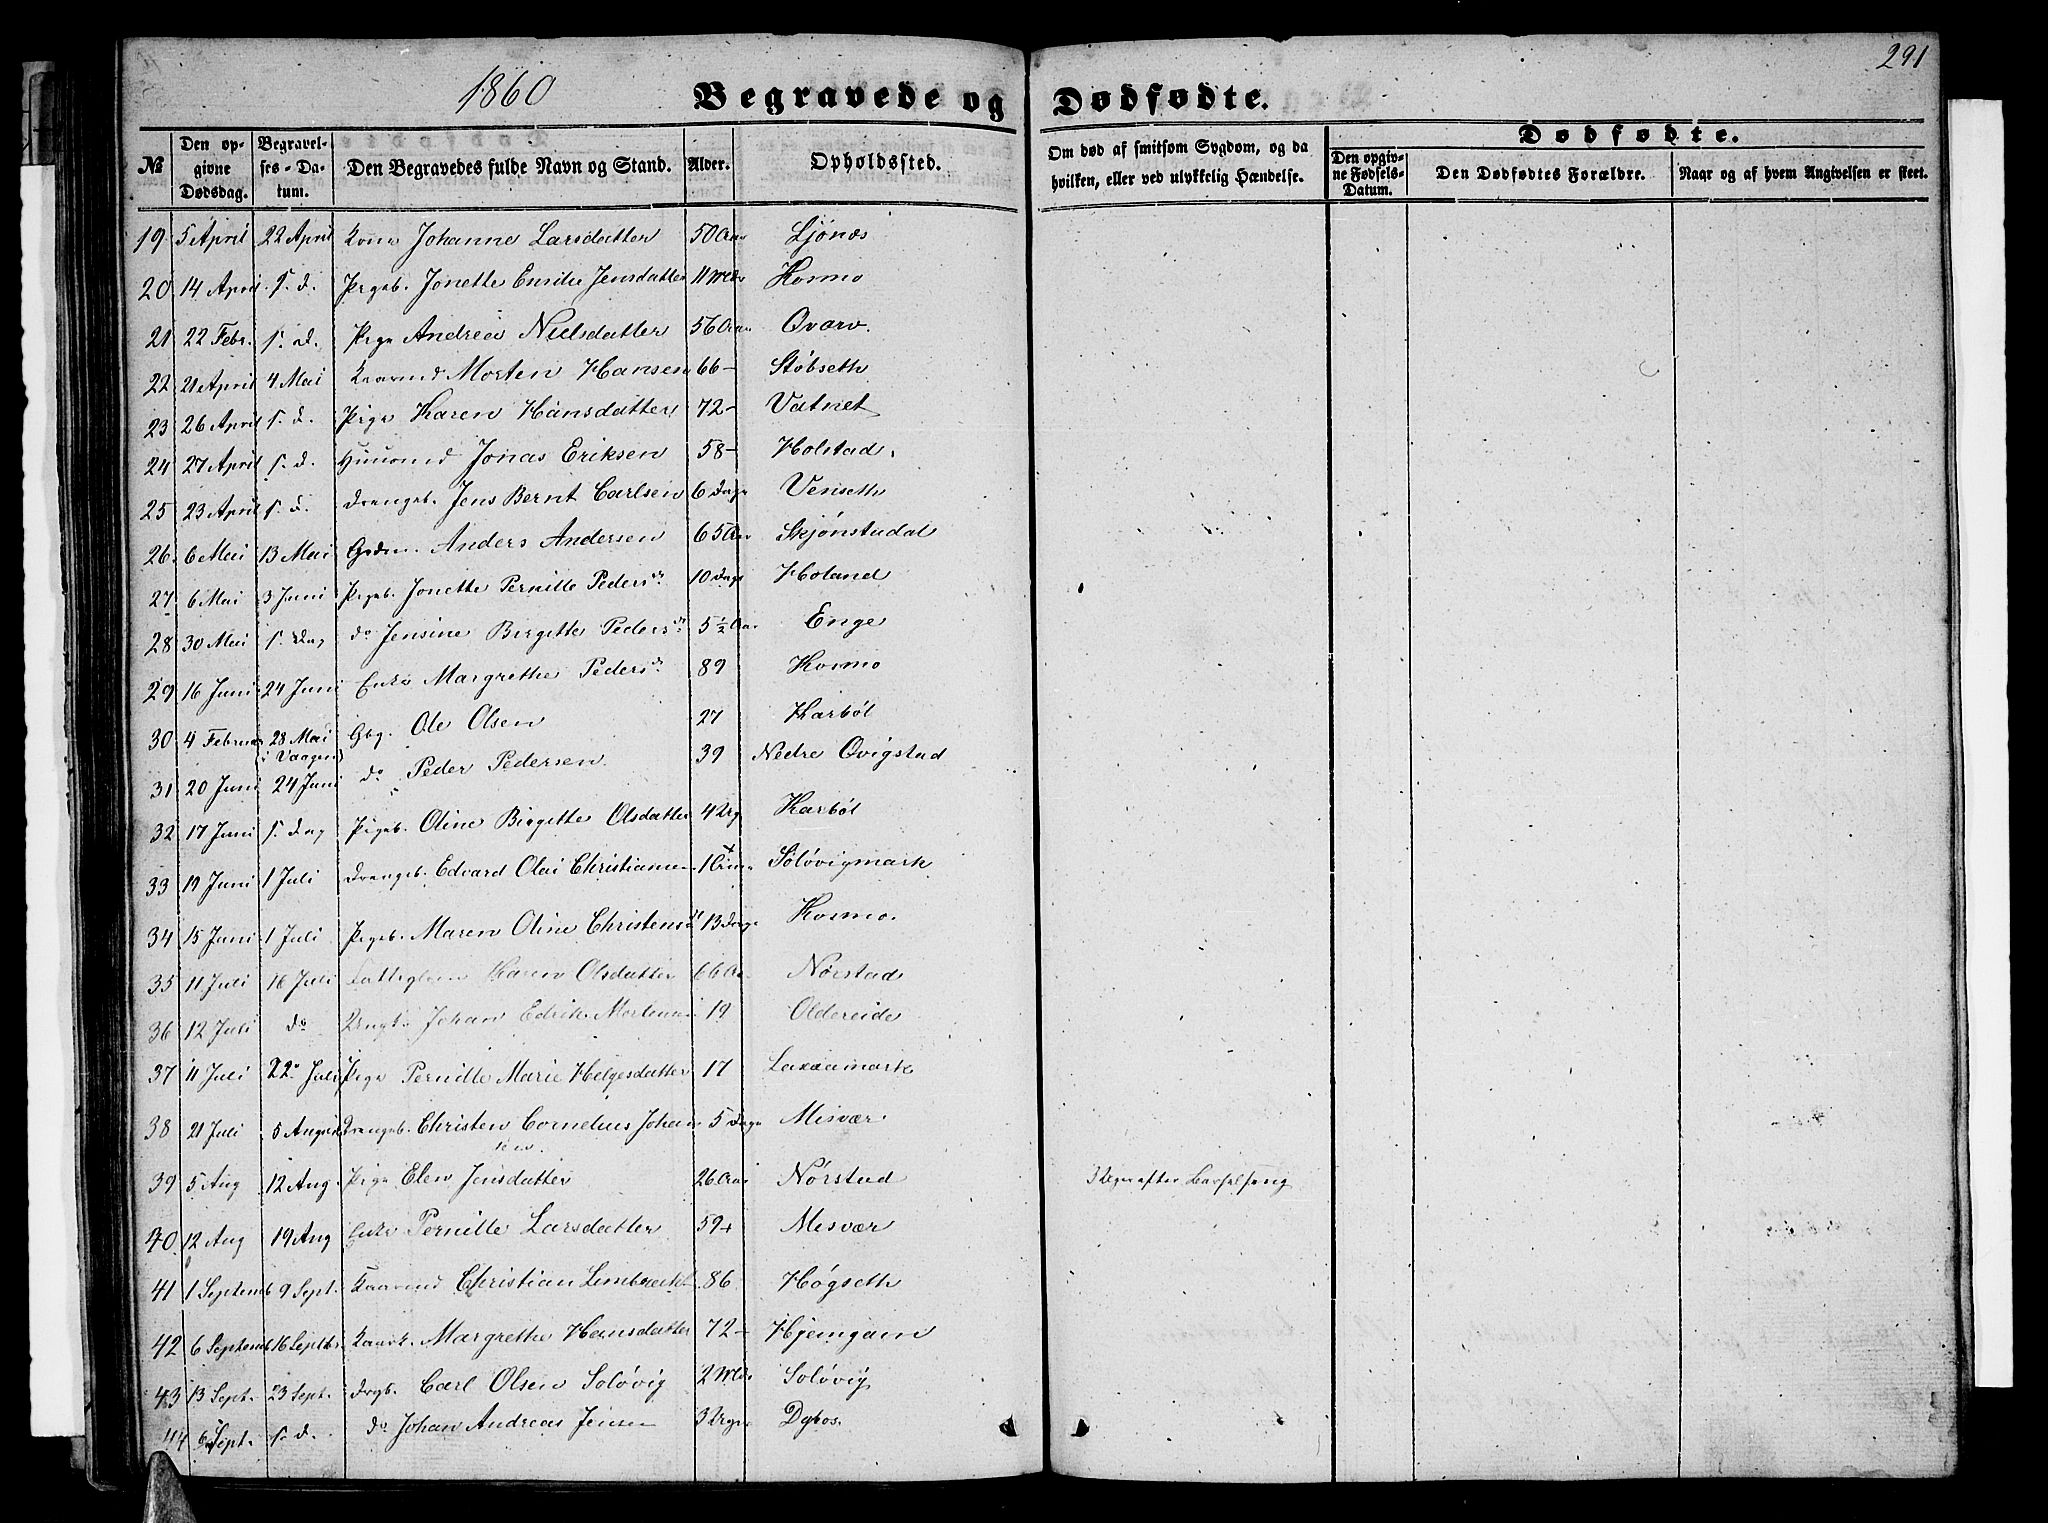 291
1860
Begravede og Dødfødte.
№
Den opgivne Dødsdag.
Begravelses-Datum.
Den Begravedes fulde Navn og Stand.
Alder.
Opholdssted.
Om død af smitsom Sygdom, og da hvilken, eller ved ulykkelig Hændelse.
Dødfødte.
Den opgivne Fødsels-Datum.
Den Dødfødtes Forældre.
Naar og af hvem Angivelsen er skeet.
19 5 April 22 April Kone Johanne Larsdatter 50 Aar Ljønæs
20 14 April s. d. Pigeb. Jonette Emilie Jensdatter 11 Mdr Kosmo
21 22 Febr. s. d. Pige Andrea Nielsdatter 56 Aar Qvarv.
22 21 April 4 Mai Kaarmd Morten Hansen 66 – Stöbseth
23 26 April s. d. Pige Karen Hansdatter 72 – Vatnet
24 27 April s. d. Huusmd Jonas Eriksen 58 – Holstad.
25 23 April s. d. Drengeb. Jens Bernt Carlsen 6 Dage Venseth
26. 6 Mai 13 Mai Gdm. Anders Andersen 65 Aar Skjönstadal
27 6 Mai 3 Juni Pigeb. Jonette Pernille Pedersdr 10 Dage Holand
28 30 Mai s. Dag do Jensine Birgitte Pedersdr 5 ½ Aar Enge
29 16 Juni 24 Juni Enke Margrethe Pedersdr 89 Kosmo
30 4 Februar 28 Mai (i Vaagen) Gbg. Ole Olsen 27 Karböl
31 20 Juni 24 Juni do Peder Pedersen 39 Nedre Qvigstad
32 17 Juni s. Dag Pigeb. Oline Birgitte Olsdatter 4 Uger Karböl
33 19 Juni 1 Juli Drengeb. Edvard Olai Christiansen 1 Solövigmark
34 15 Juni 1 Juli Pigeb. Maren Oline Christensdr 13 Dage Kosmo.
35 11 Juli 16 Juli Fattiglem Karen Olsdatter 66 Aar Nørstad
36 12 Juli do Johan Edrik Mortensen 19 Oldereide
37 11 Juli 22 Juli Pige Pernille Marie Helgesdatter 17 Laxaamark
38 21 Juli 5 August Drengeb. Christen Cornelius Johansen 5 Dage Misvær
39 5 Aug 12 Aug. Pige Elen Jensdatter 26 Aar Nörstad 3 Uger efter Barselseng
40 12 Aug 19 Aug Enke Pernille Larsdatter 59 Misvær
41 1 Septemb 9 Sept. Kaarmd Christian 86 Høgseth
42 6 Septemb 16 Septbr Kaark. Margrethe Hansdatter 72 – Hjemgam
43 13 Sept. 23 Sept. Drgb. Carl Olsen Solövig 2 Mdr Solövig
44 6 Sept. s. d. do Johan Andreas Jensen 3 Uger Dybos.